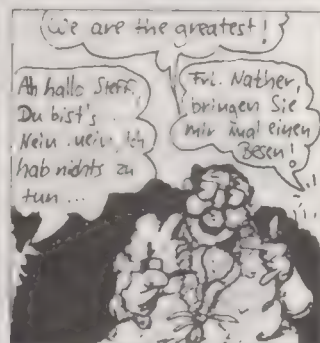 We are the greatest!
Ah hallo Steff,
Du bist's
Nein nein, ich
hab nichts zu
tun ...
Frl. Nather,
bringen Sie
mir mal einen
Besen!